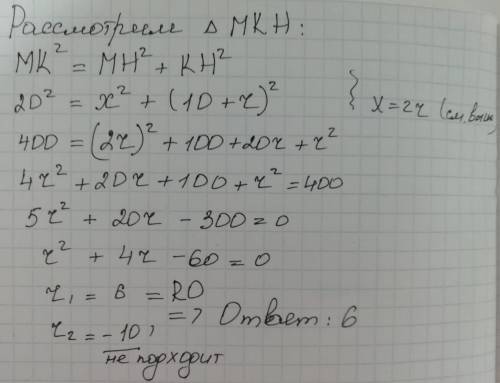 Рассмотрим Δ MKH:
MK² = MH² + KH²
20² = x² + (10 + r)² } x = 2r (см. выше
400 = (2r)² + 100 + 20r + r²
4r² + 20r + 100 + r² = 400
5r² + 20r - 300 = 0
r² + 4r - 60 = 0
r₁ = 6 = RO
r₂ = -10, => Ответ: 6
не подходит